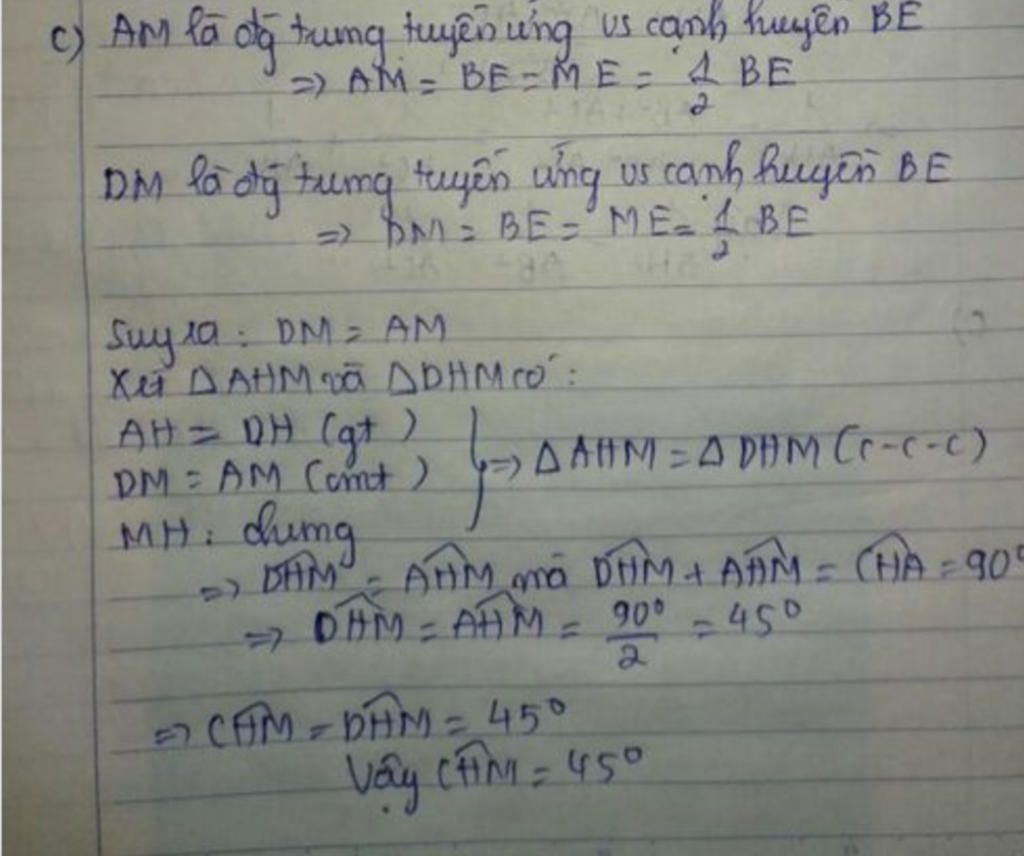 c) AM là đg trung tuyến ứng vs cạnh huyền BE
=> AM = BE = ME = 1/2 BE
DM là đg trung tuyến ứng vs cạnh huyền BE
=> DM = BE = ME = 1/2 BE
Suy ra : DM = AM
Xét ΔAHM và ΔDHM có :
AH = DH (gt)
DM = AM (cmt) } => ΔAHM = ΔDHM (c-c-c)
MH : chung
=> \widehat{DHM} = \widehat{AHM} mà \widehat{DHM} + \widehat{AHM} = \widehat{CHA} = 90°
=> \widehat{DHM} = \widehat{AHM} = 90°/2 = 45°
=> \widehat{CHM} = \widehat{DHM} = 45°
Vậy \widehat{CHM} = 45°